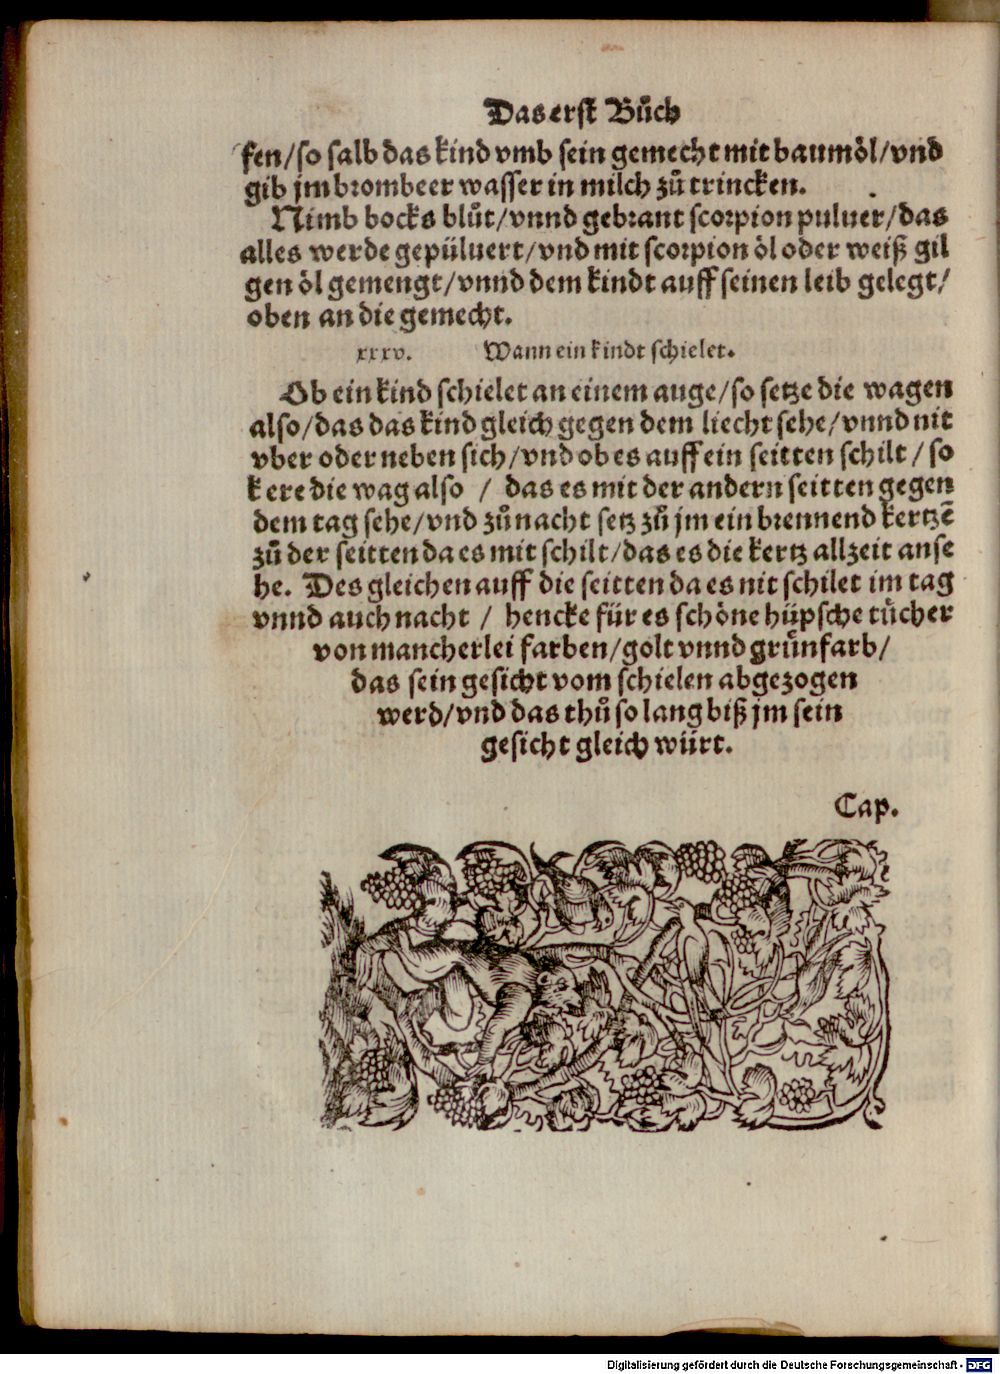 Das erst Bůch
fen/so salb das kind vmb sein gemecht mit baumöl/vnd
gib jm brombeer wasser in milch zů trincken.
Nimb bocks blůt/vnnd gebrant scorpion puluer/das
alles werde gepüluert/vnd mit scorpion öl oder weiß gil
gen öl gemengt/vnnd dem kindt auff seinen leib gelegt/
oben an die gemecht.
xxxv. Wann ein kindt schielet.
Ob ein kind schielet an einem auge/so setze die wagen
also/das das kind gleich gegen dem liecht sehe/vnnd nit
vber oder neben sich/vnd ob es auff ein seitten schilt/so
kere die wag also / das es mit der andern seitten gegen
dem tag sehe/vnd zů nacht setz zů jm ein brennend kertzē
zů der seitten da es mit schilt/das es die kertz allzeit anse
he. Des gleichen auff die seitten da es nit schilet im tag
vnnd auch nacht / hencke für es schöne hüpsche tůcher
von mancherlei farben/golt vnnd grůnfarb/
das sein gesicht vom schielen abgezogen
werd/vnd das thů so lang biß jm sein
gesicht gleich würt.
Cap.
Digitalisierung gefördert durch die Deutsche Forschungsgemeinschaft - DFG